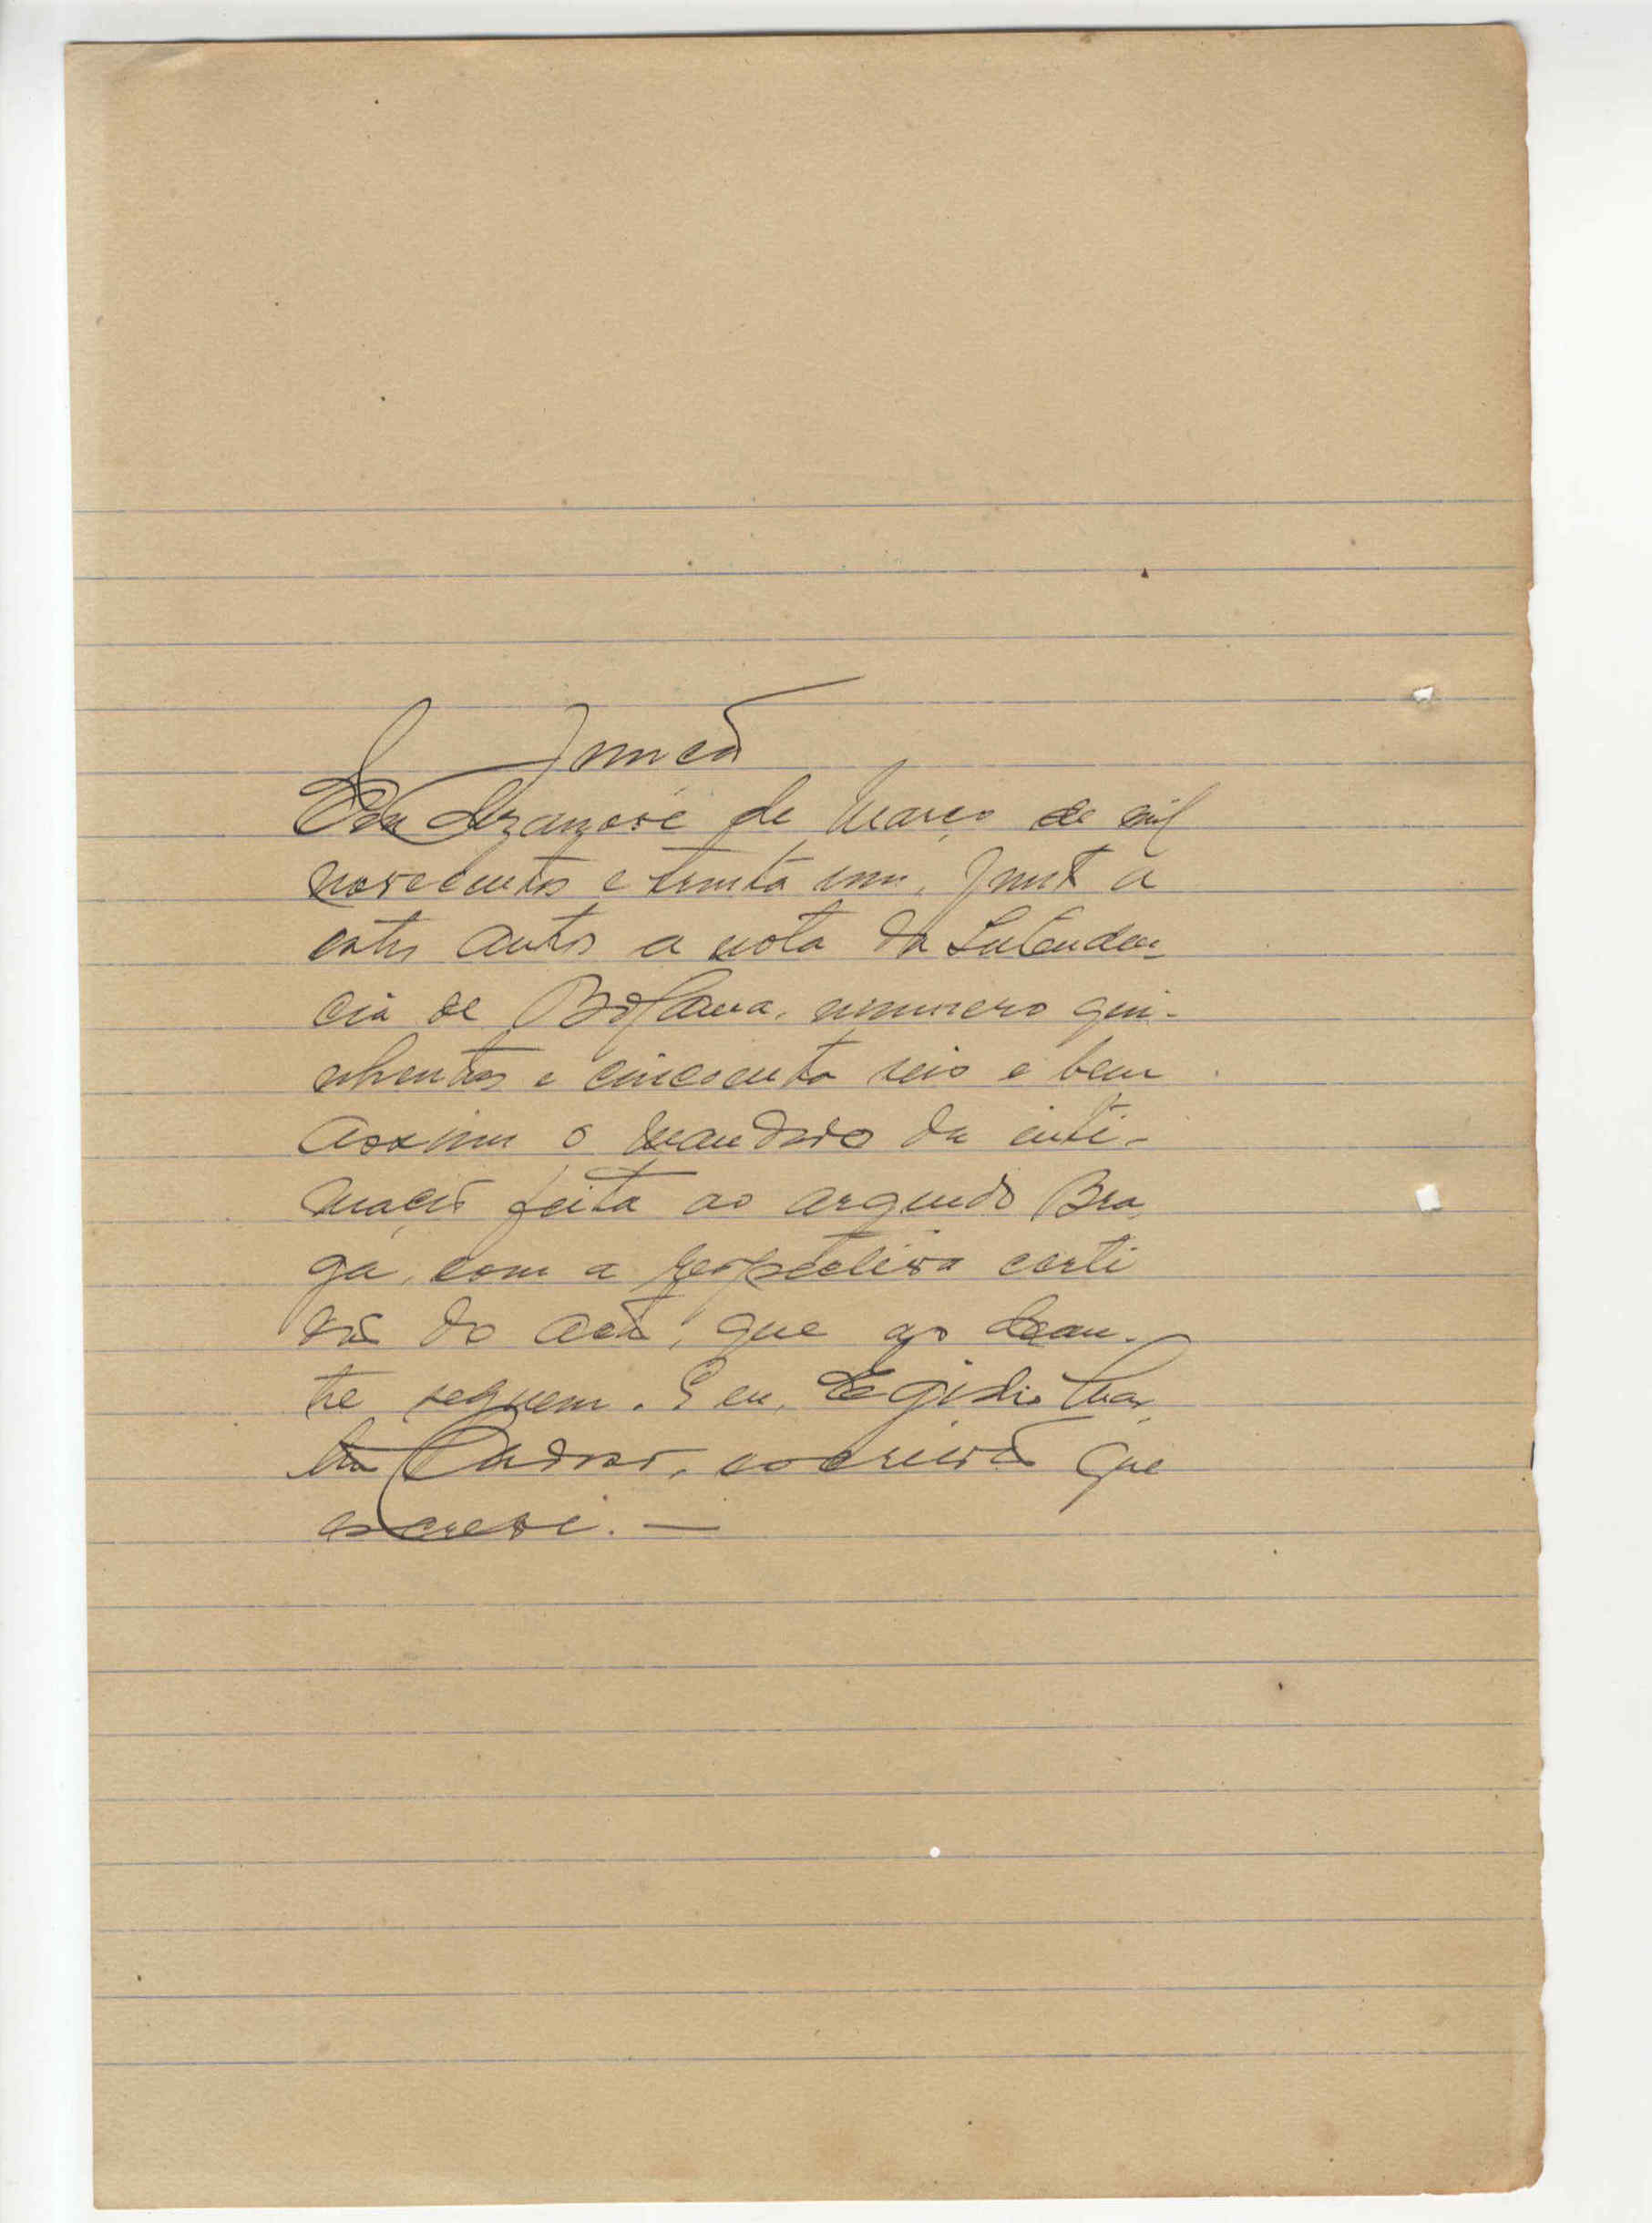 Junção
Em dezanove de Março de mil
novecentos e trinta um, junto a
estes autos a nota da Intenden-
cia de Bolama, numero qui-
nhentos e cincoenta seis e bem
assim o mandado da inti-
mação feita ao arguido Bra-
ga, com a respectiva certi
dão do acto, que ao dean-
te seguem. E eu, Egidio Mar
Cardoso, escrivão que
escrevi. —